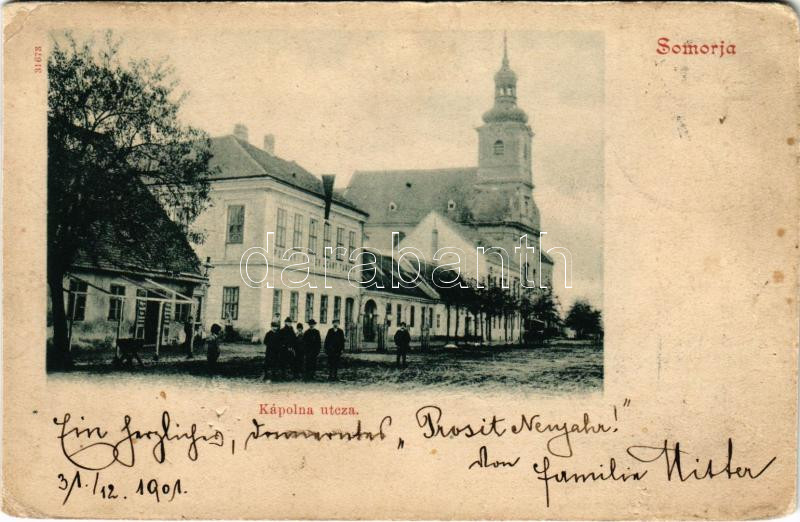 31673
Somorja
darabanth
Kápolna utcza.
Ein herzliches, donnerndes „Prosit Neujahr!"
Von Familie Ritter
31./12. 1901.